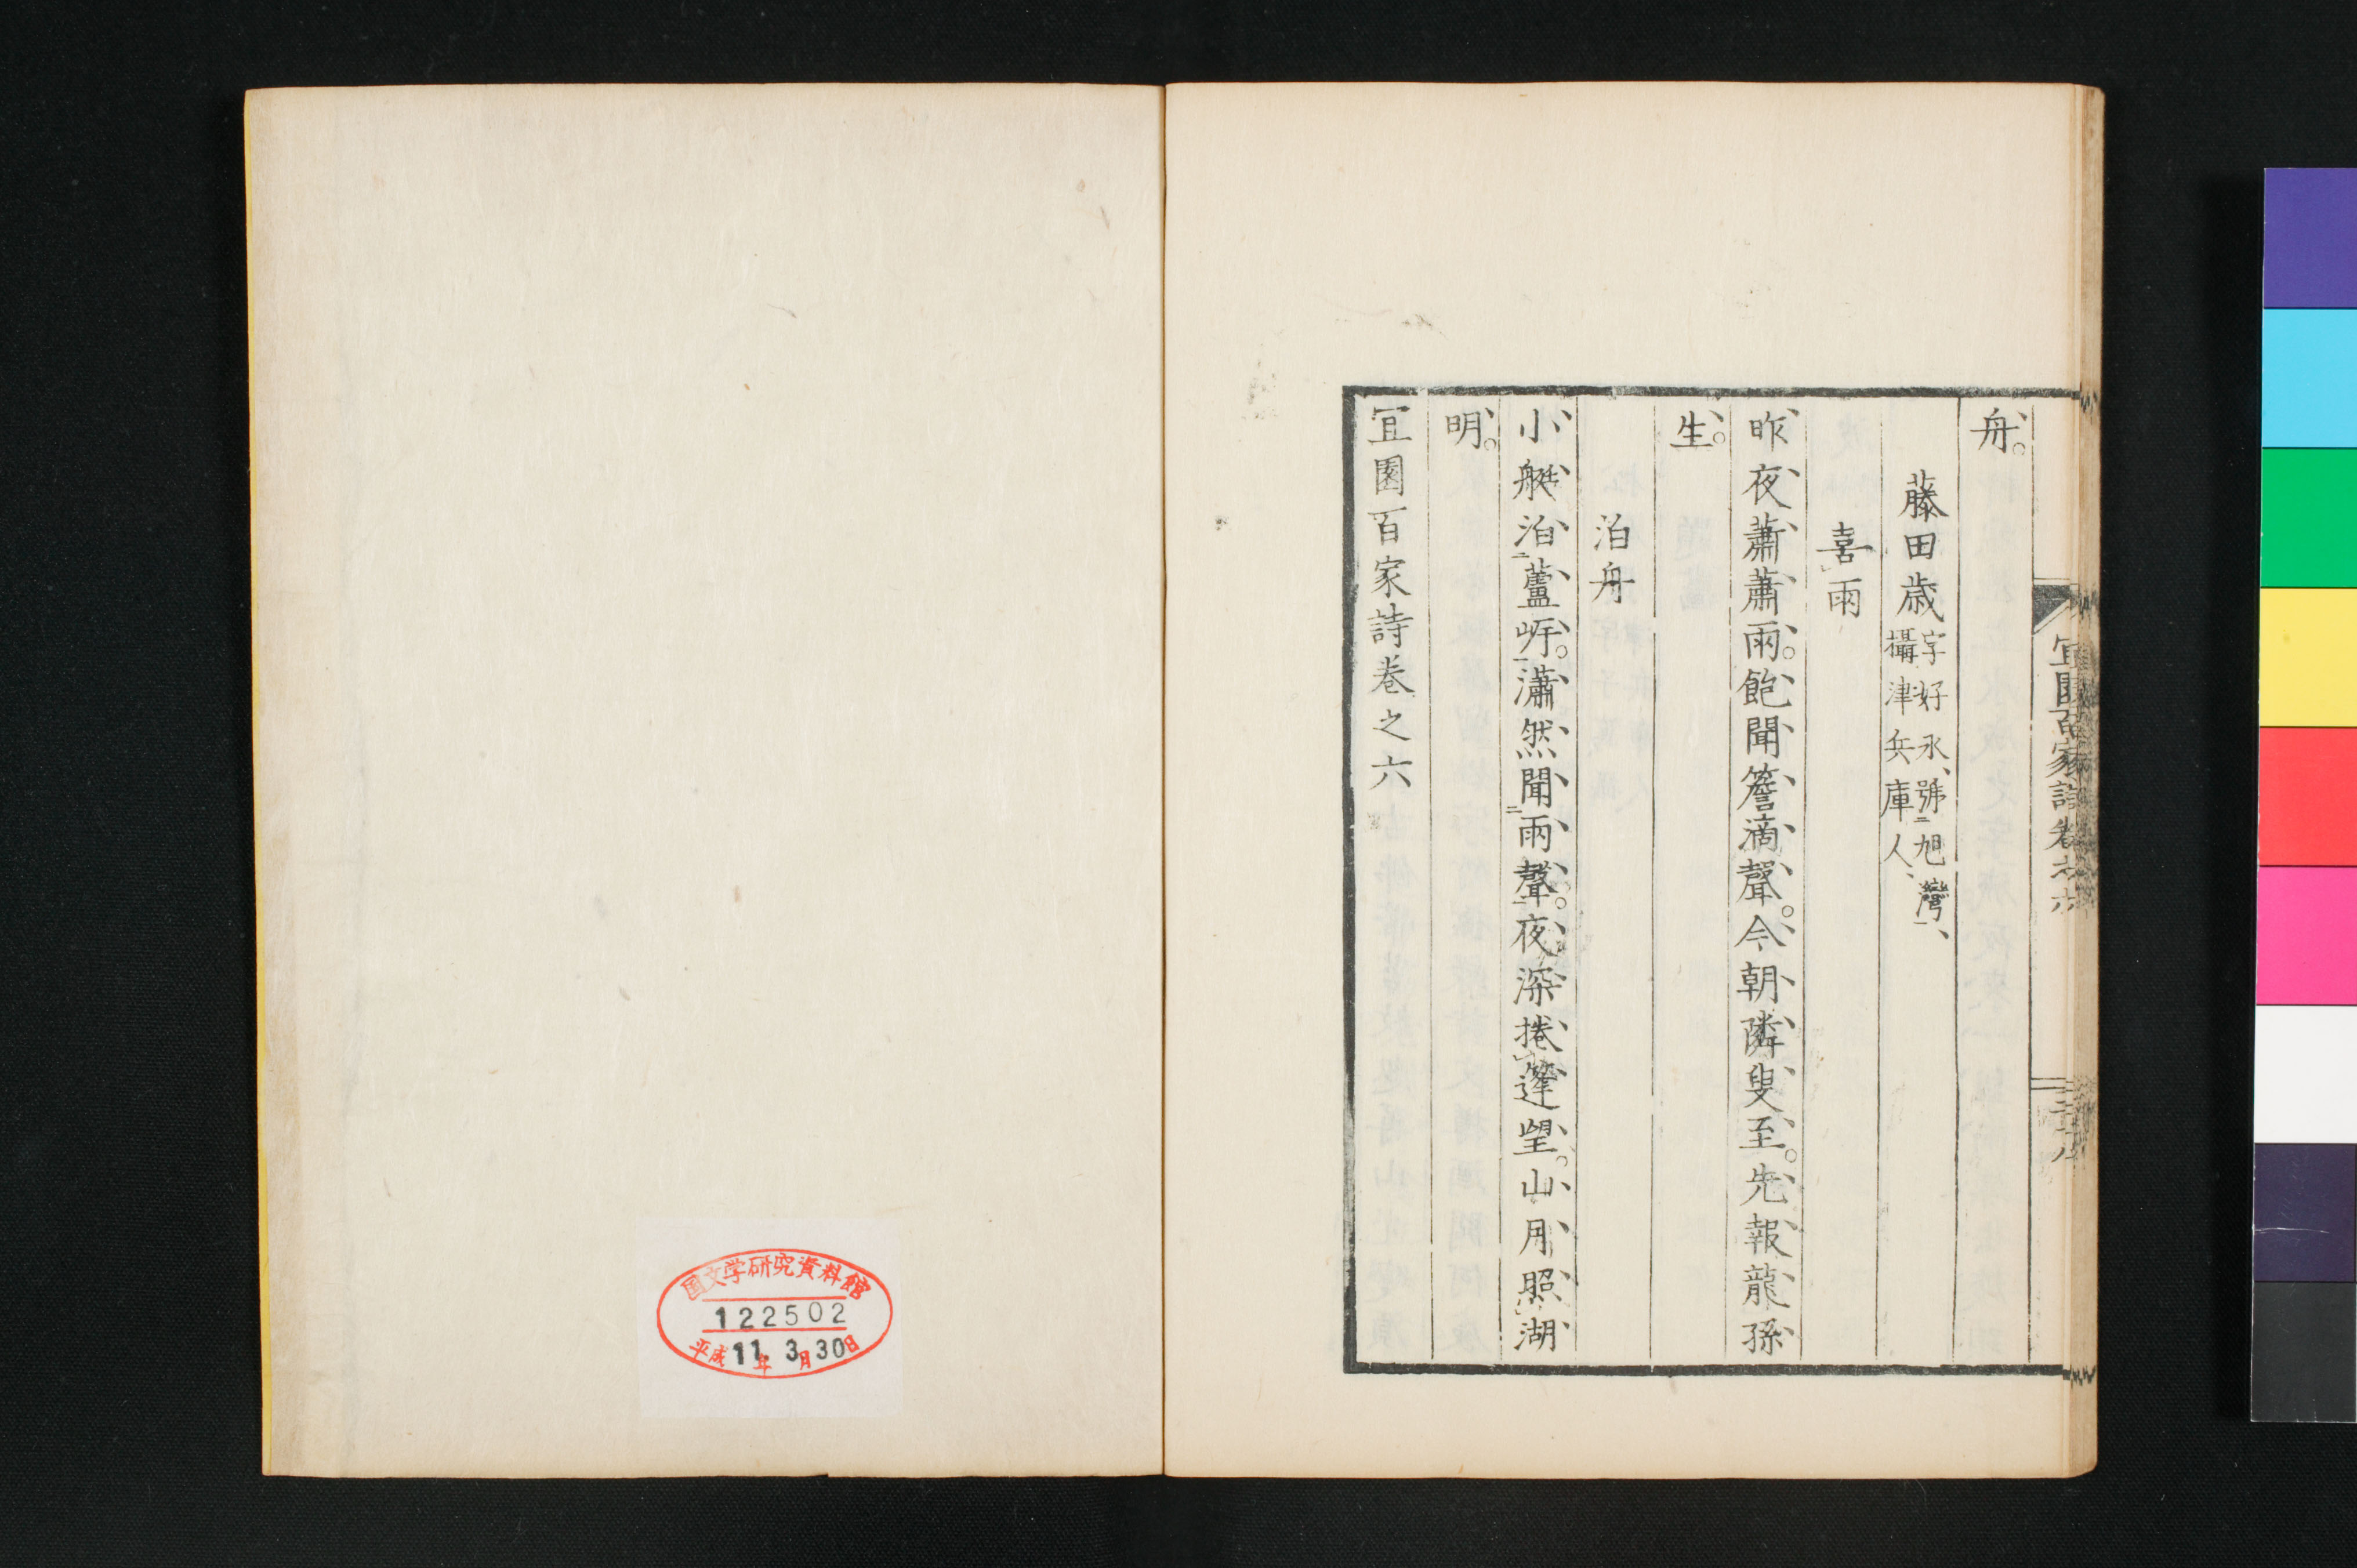 舟。
藤田歳 字好永、號二旭灣一、
攝津兵庫人、
喜雨
昨夜蕭蕭雨。飽聞簷滴聲。今朝隣叟至。先報龍孫
生。
泊舟
小艇泊二蘆岸一。瀟然聞二雨聲一。夜深捲篷望。山月照湖
明。
宜園百家詩卷之六
宜園百家詩卷之六
国文学研究資料館
122502
平成11年3月30日